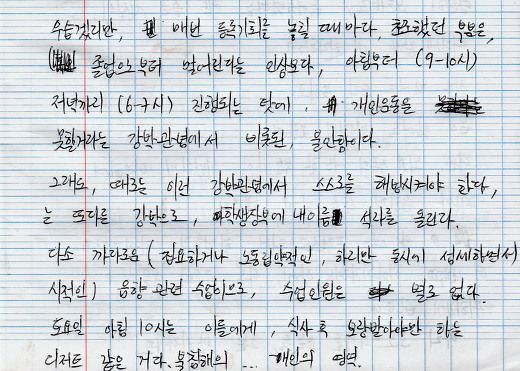 우습겠지만, 매번 등록기회를 놓칠 때마다, 초조했던 부분은,
졸업으로부터 멀어진다는 인상보다, 아침부터 (9-10시)
저녁까지 (6-7시) 진행되는 탓에, 개인운동을
못할거라는 강박관념에서 비롯된, 불안함이다.
그래도, 때로는 이런 강박관념에서 스스로를 해방시켜야 한다,
는 또다른 강박으로, 학생장부에 내이름 석자를 올린다.
다소 까다로운 (집요하거나 노동집약적인, 하리만 동시에 섬세하면서
시적인) 음향 관련 수업으로, 수업인원은 별로 없다.
토요일 아침 10시는 이들에게, 식사 혹 보장받아야만 하는
디저트 같은 거다. 불침해의 ... 개인의 영역.